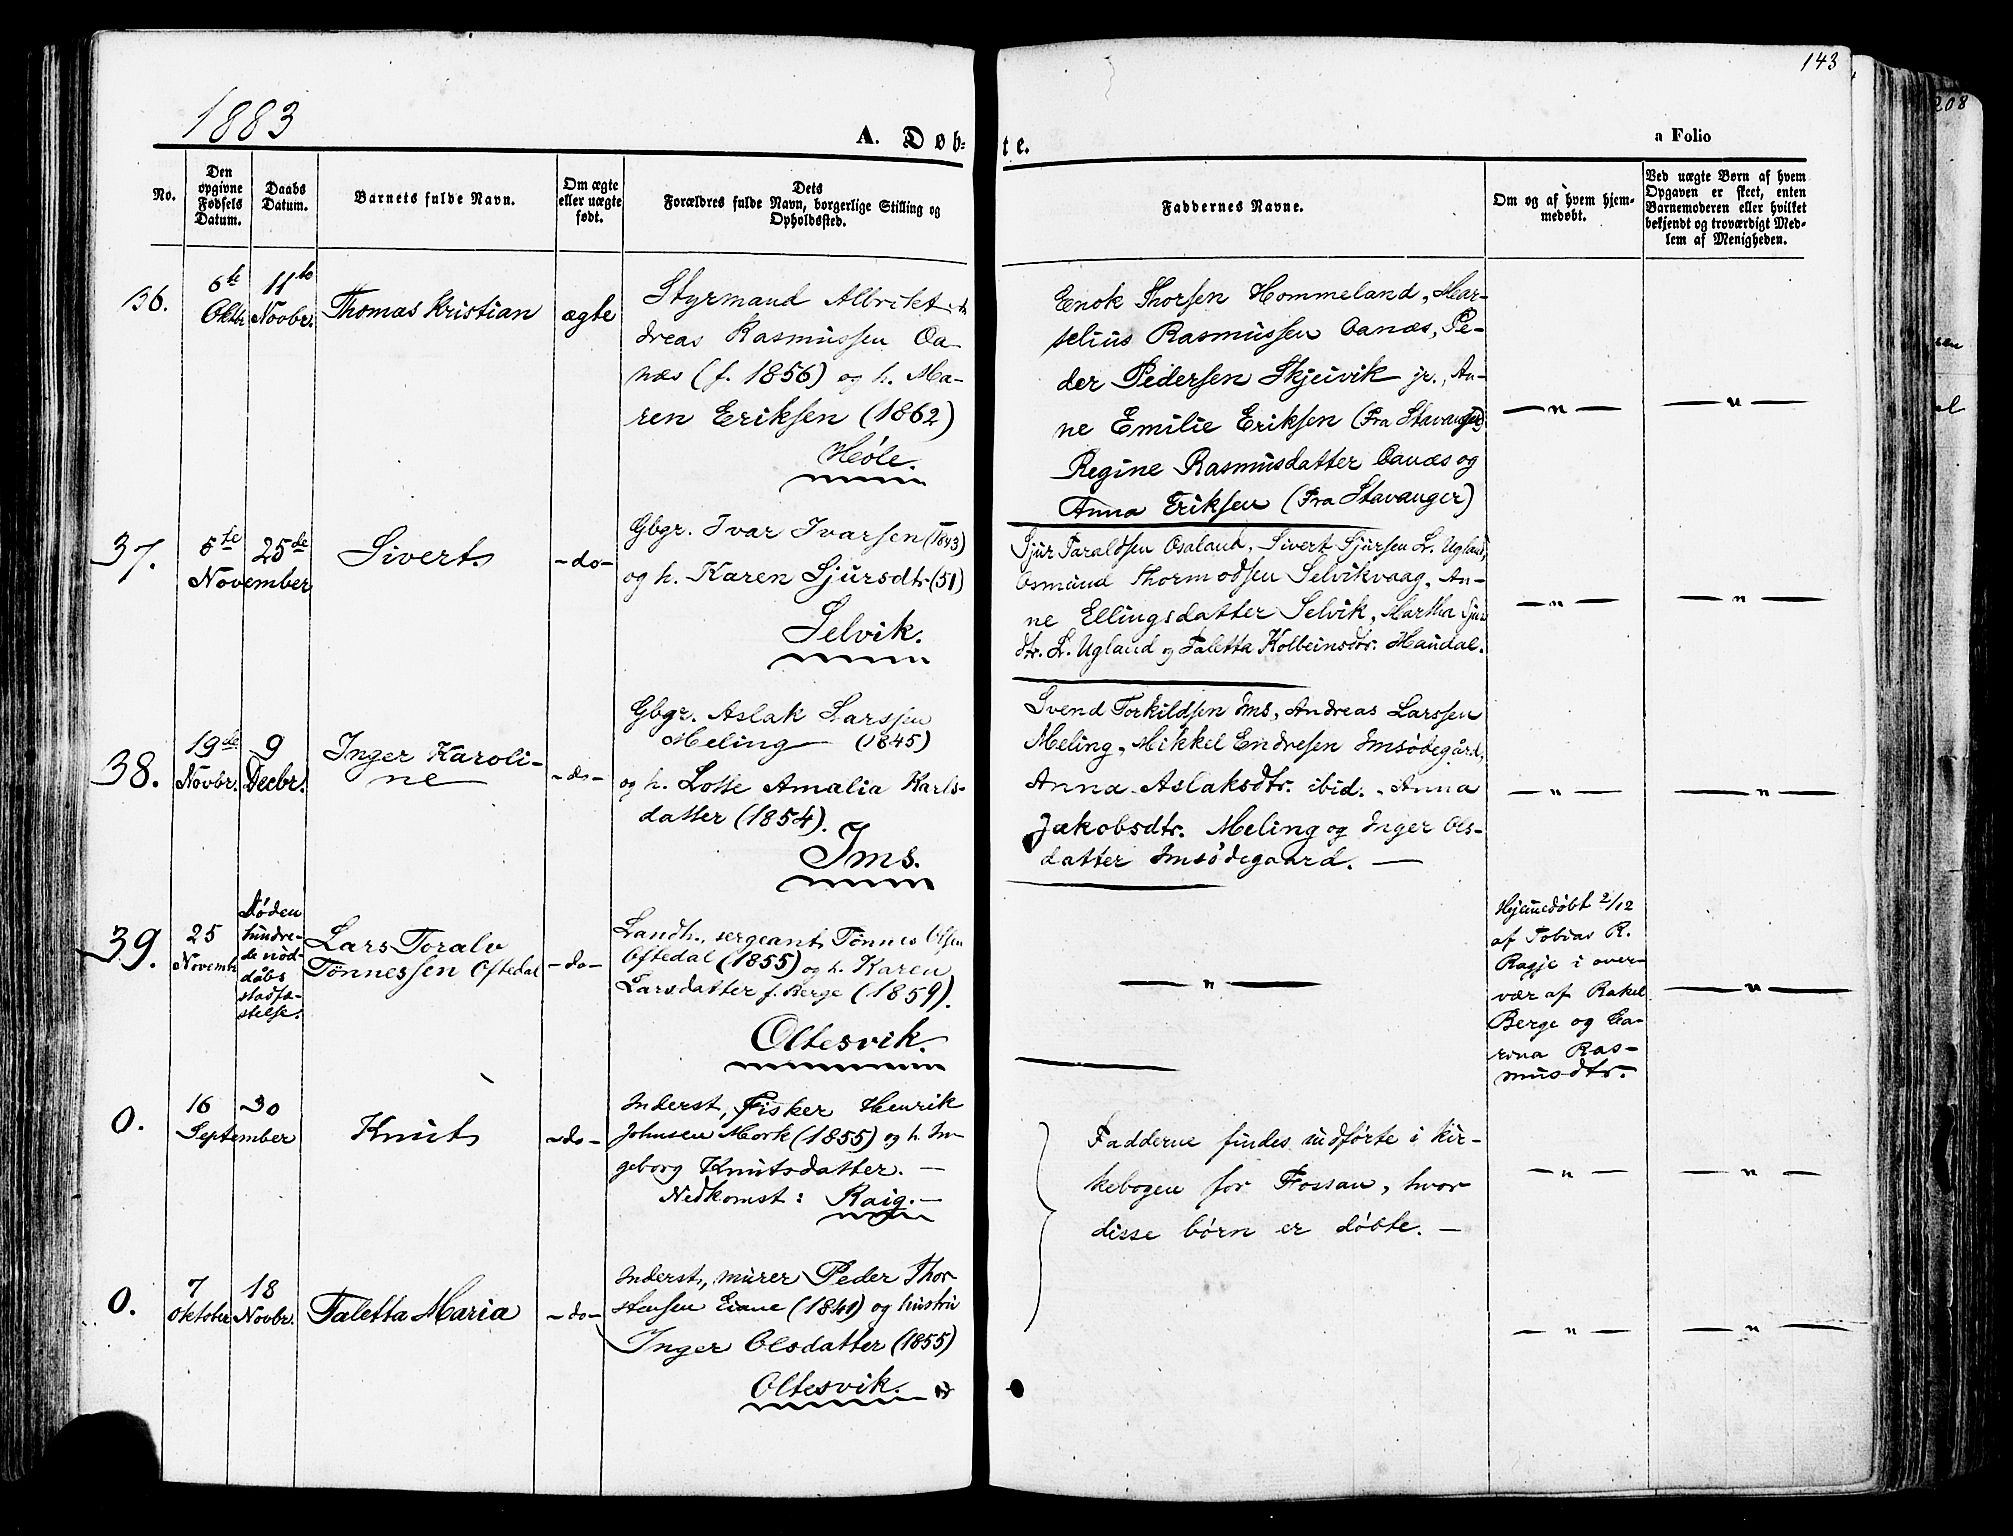 143
208
1883
A. Døb-
te.
a Folio
No.
Den opgivne Fødsels Datum.
Daabs Datum.
Barnets fulde Navn.
Om ægte eller uægte født.
Dets
Forældres fulde Navn, borgerlige Stilling og
Opholdssted.
Faddernes Navne.
Om og af hvem hjem-
medøbt.
Ved uægte Børn af hvem
Opgaven er skeet, enten
Barnemoderen eller hvilket
bekjendt og troværdigt Med-
lem af Menigheden.
36.
6te 11te
Oktbr. Novbr.
Thomas Kristian
ægte
Styrmand Albrikt
dreas Rasmussen Oa-
næs (f. 1856) og h. Ma-
ren Eriksen (1862)
Høle.
Enok Thorsen Hommeland, Mar-
selius Rasmussen Oanæs, Pe-
der Pedersen Skjeivik jr., An-
ne Emilie Eriksen (Fra Stavanger)
Regine Rasmusdatter Oanæs og
Anna Eriksen (Fra Stavanger)
— " —
— " —
37.
5te 25de
November
Sivert
- do -
Gbgr. Ivar Ivarsen (1843)
og h. Karen Sjursdtr (51)
Selvik.
Sjur Taraldsen Osaland, Sivert Sjursen L. Ugland,
Osmund Thormodsen Selvikvaag, An-
ne Ellingsdatter Selvik, Martha Sjurs
dtr. L. Ugland og Taletta Kolbeinsdtr. Haudal.
— " —
— " —
38.
19de 9
Novbr. Decbr.
Inger Karoli-
ne
- do -
Gbgr. Aslak Larssen
Meling — (1845)
og h. Lotte Amalia Karls-
datter (1854).
Ims.
Svend Torkildsen Ims, Andreas Larssen
Meling, Mikkel Endresen Imsødegård,
Anna Aslaksdtr. ibid., Anna
Jakobsdtr. Meling og Inger Ols-
datter Imsødegaard. —
— " —
— " —
39.
25
Novembr
Døden
hindre-
de nød-
dåbs
stadfæ-
stelse.
Lars Toralv
Tønnessen Oftedal
- do -
Landh., sergeant Tønnes Olsen
Oftedal (1855) og h. Karen
Larsdatter f. Berge (1859).
Oltesvik.
— " —
Hjemmedøbt 2/12
af Tobias R.
Ragje i over-
vær af Rakel
Berge og Ca-
rina Ras-
musdtr.
— " —
0.
16 30
September
Knut
- do -
Inderst, Fisker Henrik
Johnsen Mork (1855) og h. In-
geborg Knutsdatter. —
Nedkomst: Raig. —
Fadderne findes indførte i kir-
kebogen for Fossan, hvor
disse børn er døbte. —
— " —
— " —
0.
7 18
Oktober Novbr.
Taletta Maria
- do -
Inderst, murer Peder Thor-
stensen Eiane (1841) og hustru
Inger Olsdatter (1855)
Oltesvik.
— " —
— " —